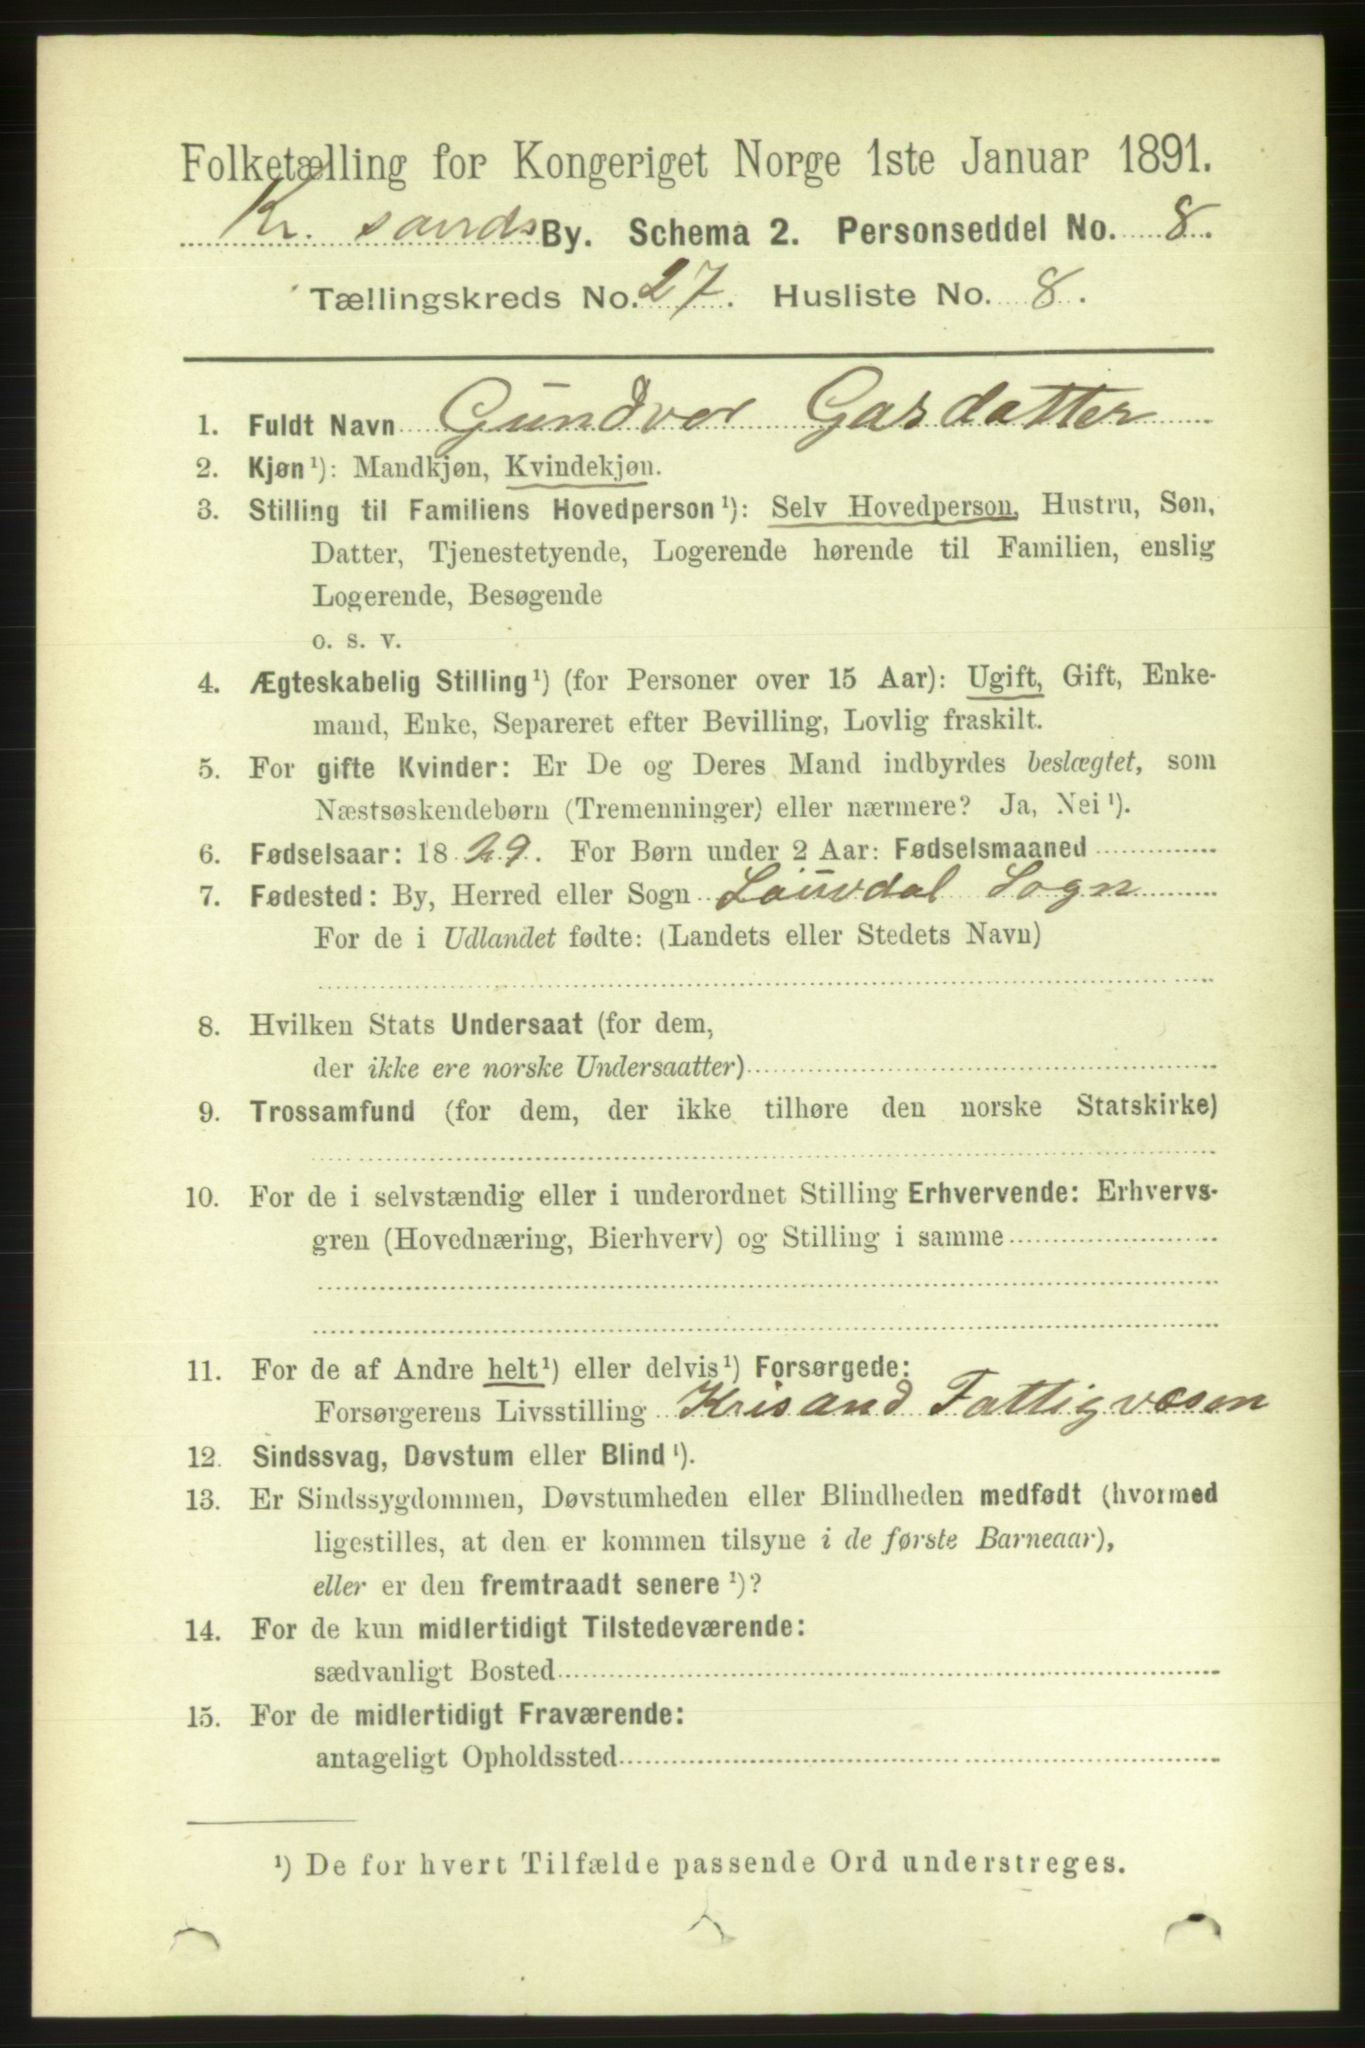 Folketælling for Kongeriget Norge 1ste Januar 1891.
Kr. sands By. Schema 2. Personseddel No. 8.
Tællingskreds No. 27. Husliste No. 8.
1. Fuldt Navn Gundvor Gasdatter
2. Kjøn¹): Mandkjøn, Kvindekjøn.
3. Stilling til Familiens Hovedperson¹): Selv Hovedperson, Hustru, Søn,
Datter, Tjenestetyende, Logerende hørende til Familien, enslig
Logerende, Besøgende
o. s. v.
4. Ægteskabelig Stilling¹) (for Personer over 15 Aar): Ugift, Gift, Enke-
mand, Enke, Separeret efter Bevilling, Lovlig fraskilt.
5. For gifte Kvinder: Er De og Deres Mand indbyrdes beslægtet, som
Næstsøskendebørn (Tremenninger) eller nærmere? Ja, Nei¹).
6. Fødselsaar: 1829. For Børn under 2 Aar: Fødselsmaaned
7. Fødested: By, Herred eller Sogn Lauvdal Sogn
For de i Udlandet fødte: (Landets eller Stedets Navn)
8. Hvilken Stats Undersaat (for dem,
der ikke ere norske Undersaatter)
9. Trossamfund (for dem, der ikke tilhøre den norske Statskirke)
10. For de i selvstændig eller i underordnet Stilling Erhvervende: Erhvervs-
gren (Hovednæring, Bierhverv) og Stilling i samme
11. For de af Andre helt¹) eller delvis¹) Forsørgede:
Forsørgerens Livsstilling Krisand Fattigvæsen
12. Sindssvag, Døvstum eller Blind¹).
13. Er Sindssygdommen, Døvstumheden eller Blindheden medfødt (hvormed
ligestilles, at den er kommen tilsyne i de første Barneaar),
eller er den fremtraadt senere¹)?
14. For de kun midlertidigt Tilstedeværende:
sædvanligt Bosted
15. For de midlertidigt Fraværende:
antageligt Opholdssted
¹) De for hvert Tilfælde passende Ord understreges.